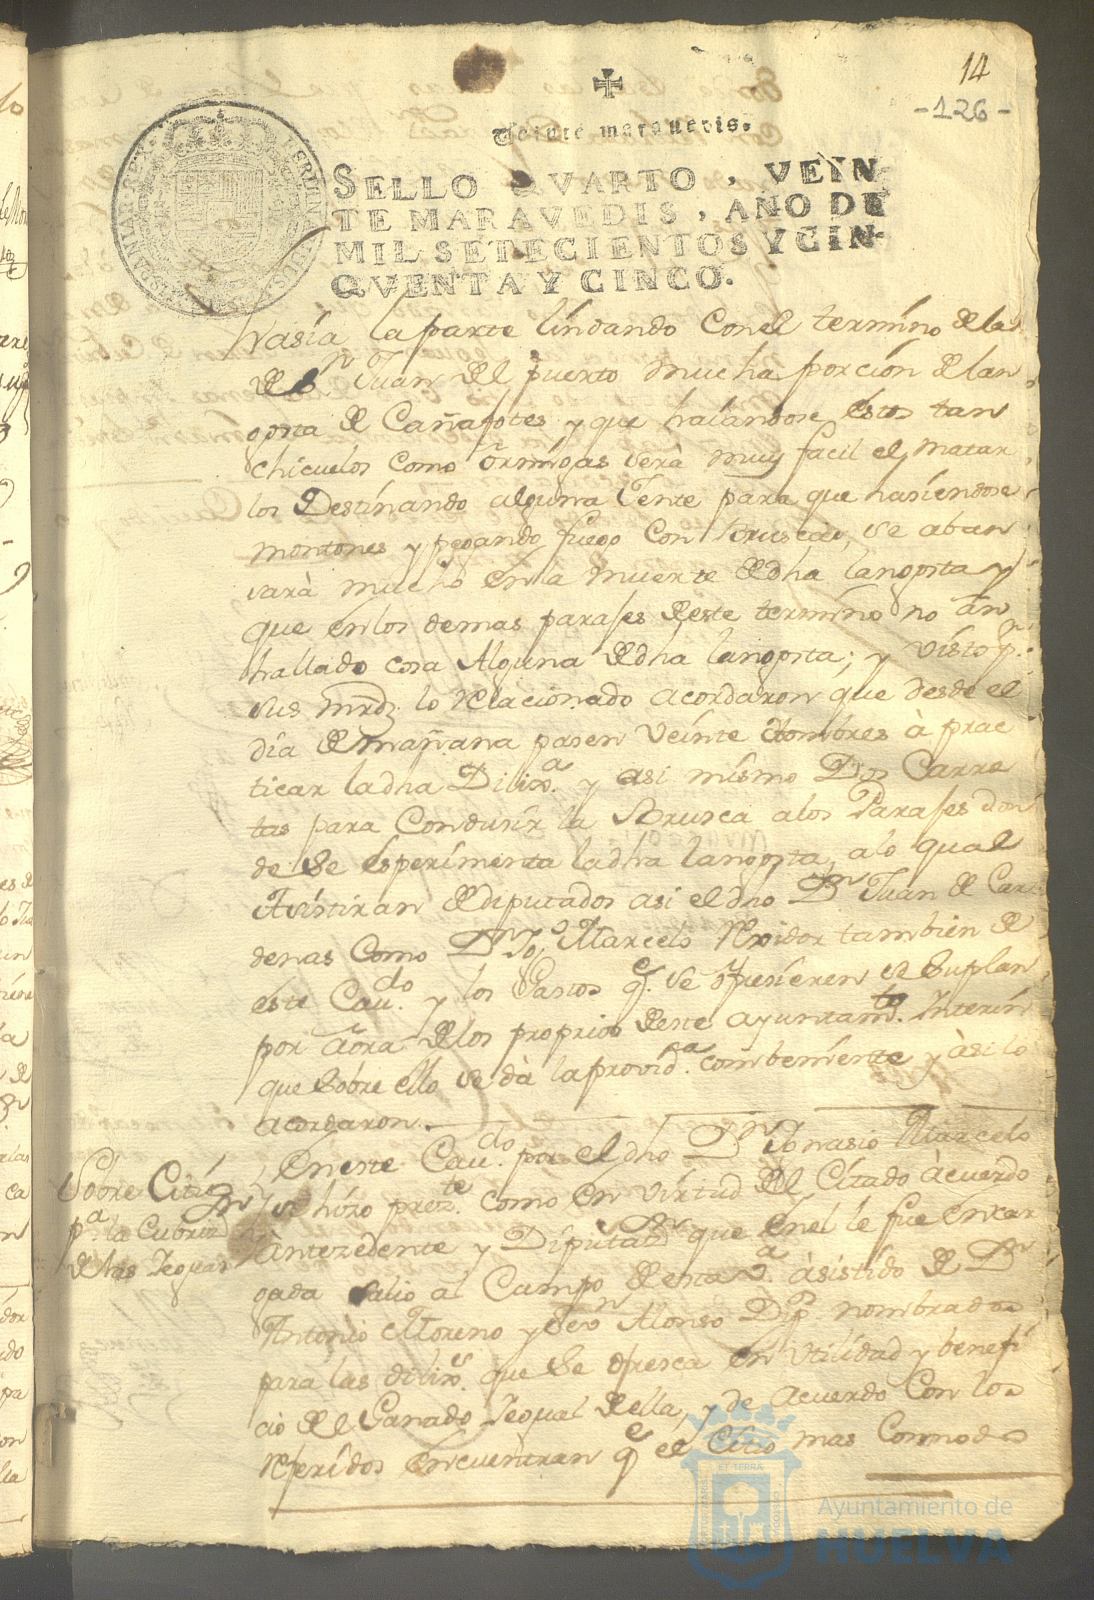 14
-126-
Veinte maravedis.
SELLO QVARTO, VEIN
TE MARAVEDIS, AÑO DE
MIL SETECIENTOS Y CIN
QVENTA Y CINCO.
hasia la parte lindando con el termino de la
de Sn Juan del puerto mucha porcion de lan
gosta de Cañafotes y que halandose estos tan
chicuelos como ormigas será muy facil el matar
los Destinando alguna Jente para que hasiendose
montones y pegando fuego con Brusca, se aban
sarà mucho en la muerte de dha langosta y
que en los demas parajes deste termino no àn
hallado cosa Alguna de dha langosta; y visto pr.
sus mrds. lo relacionado acordaron que desde el
dia de mañana pasen veinte ombres à prac
ticar la dha Dilixa. y asi mismo Dos Carre
tas para Condusir la Brusca a los Parajes don
de se esperimenta la dha langosta, a lo qual
Asistiran de diputados asi el dho Dn Juan de Car
denas Como Dn Igo. Marcelo Rexidor tambien de
este Cavdo. y los Gastos qe. se ofresieren se Suplan
por aora de los proprios deste ayuntamto. Interin
que Sobre ello se dà la provida. combeniente y àsi lo
acordaron.
Sobre Citio
pa la Cubriçn
de las Yeguas
En este Cavdo. por el dho Dn Ignasio Marcelo
se hizo preste. como en virtud del Citado àcuerdo
àntezedente y Diputasn que en el le fue encar
gada salio al Campo de esta va. àsistido de Dn
Antonio Moreno y Alonso Dips. nombrados
para las dilixs. que se ofresca en utilidad y benefi
cio del Ganado Yegual della, y de Acuerdo Con los
referidos encuentran qe el Citio mas Commodo
Ayuntamiento de
HUELVA